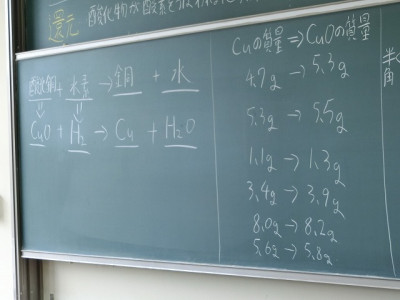 還元 酸化物が酸素を
酸化銅 + 水素 → 銅 + 水
CuO + H₂ → Cu + H₂O
Cuの質量 ⇒ CuOの質量
4.7g → 5.3g
5.3g → 5.5g
1.1g → 1.3g
3.4g → 3.9g
8.0g → 8.2g
5.6g → 5.8g